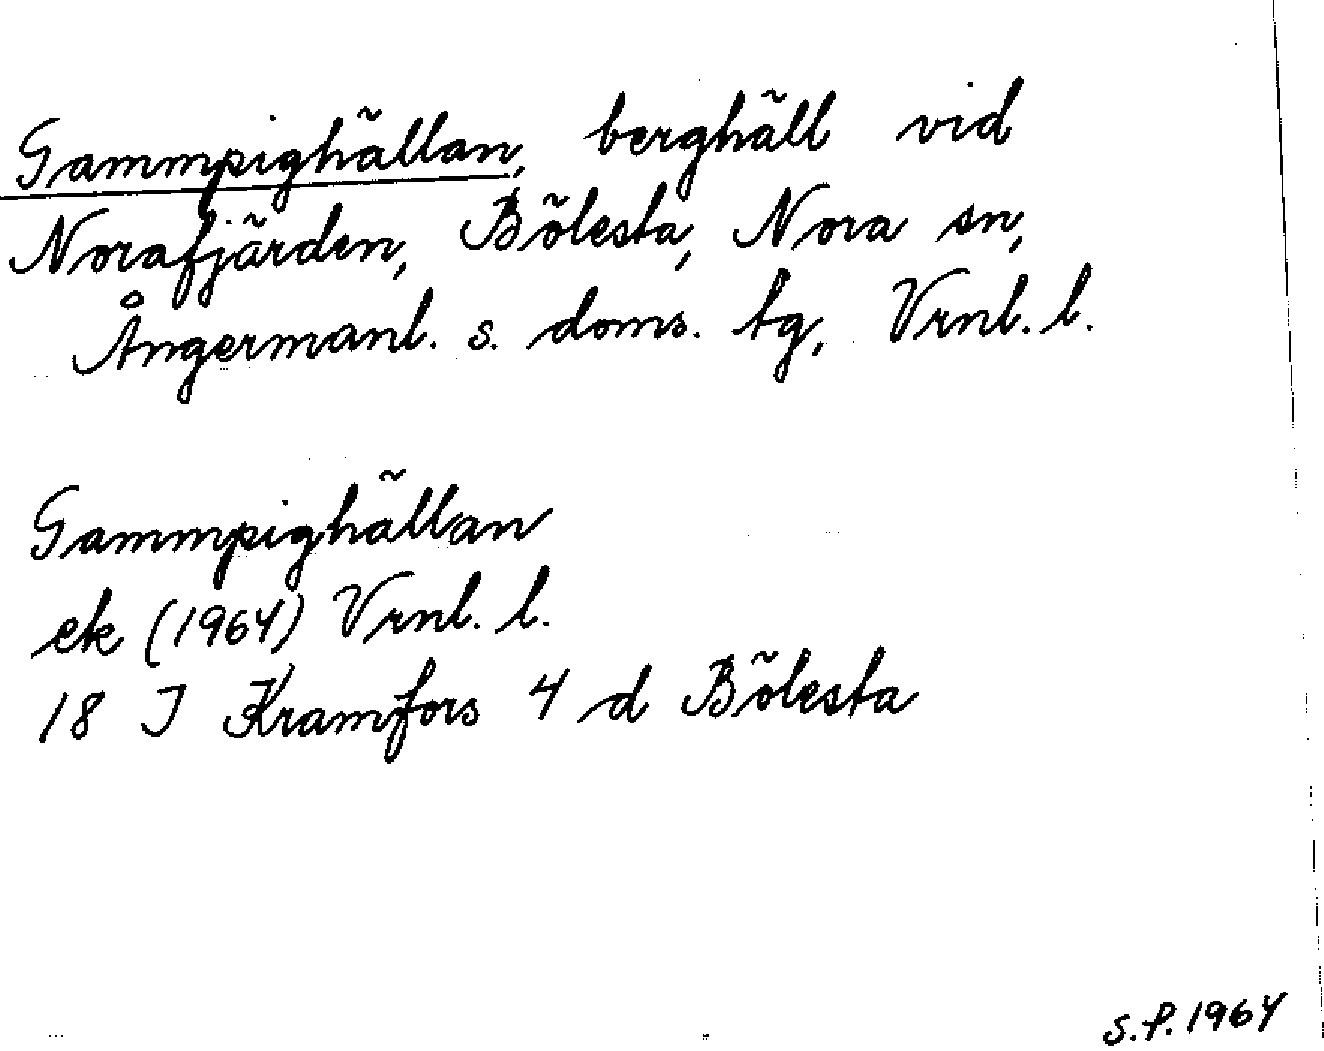 Gammpighällan, berghäll vid
Norafjärden, Bölesta, Nora sn,
Ångermanl. s. doms. tg, Vrnl. l.
Gammpighällan
ek (1964) Vrnl. l.
18 I Kramfors 4 d Bölesta
S.P. 1964